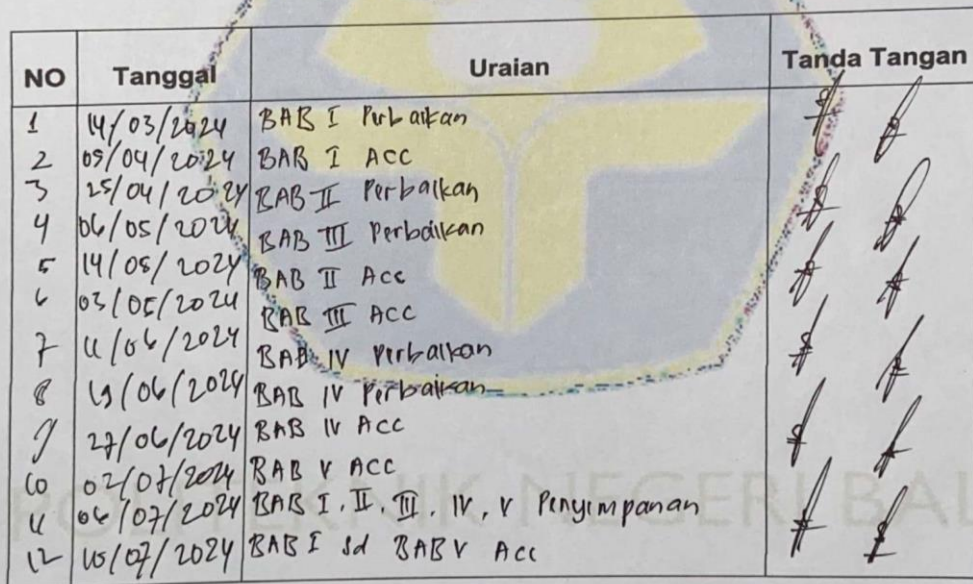 NO Tanggal Uraian Tanda Tangan
1 14/03/2024 BAB I Perbaikan
2 05/04/2024 BAB I ACC
3 25/04/2024 BAB II Perbaikan
4 06/05/2024 BAB III Perbaikan
5 14/05/2024 BAB II Acc
6 03/05/2024 BAB III ACC
7 11/06/2024 BAB IV Perbaikan
8 19/06/2024 BAB IV Perbaikan
9 27/06/2024 BAB IV ACC
10 02/07/2024 BAB V ACC
11 06/07/2024 BAB I, II, III, IV, V Penyimpanan
12 10/07/2024 BAB I sd BAB V Acc
POLITEKNIK NEGERI BAL